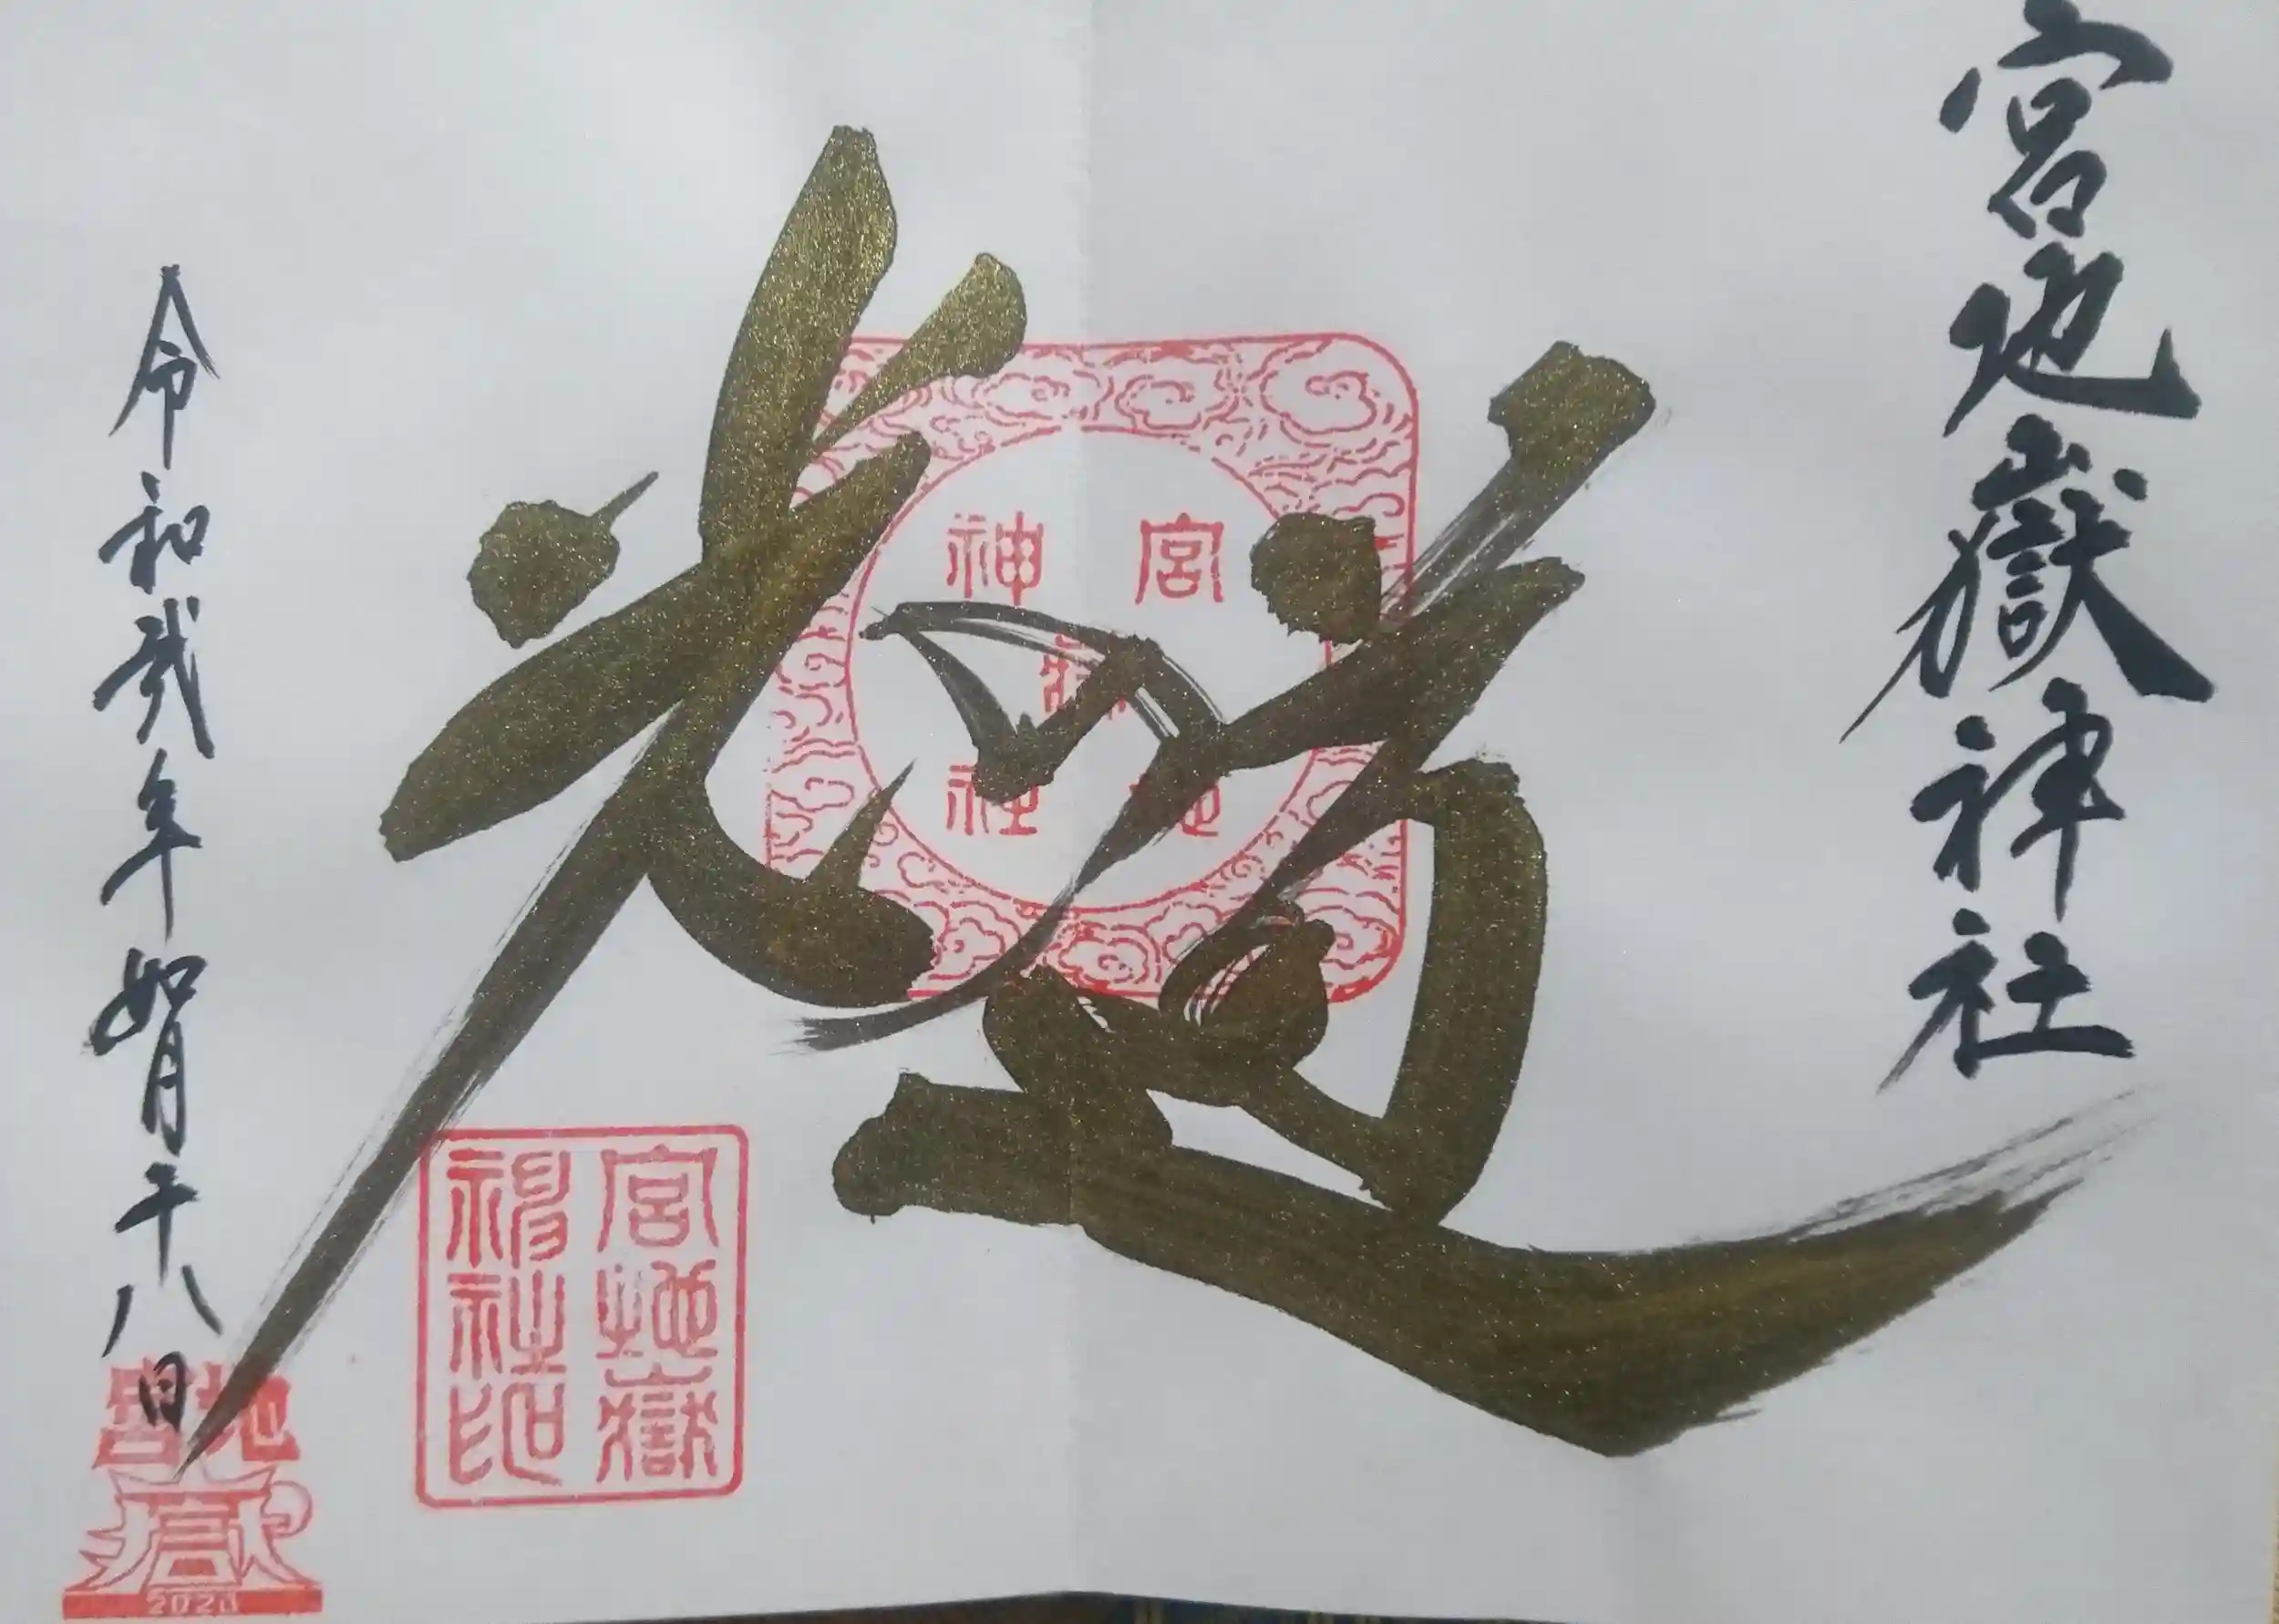 宮地嶽神社
光道
宮地嶽神社
宮地嶽
神社印
令和弐年如月十八日
宮地
嶽
2020